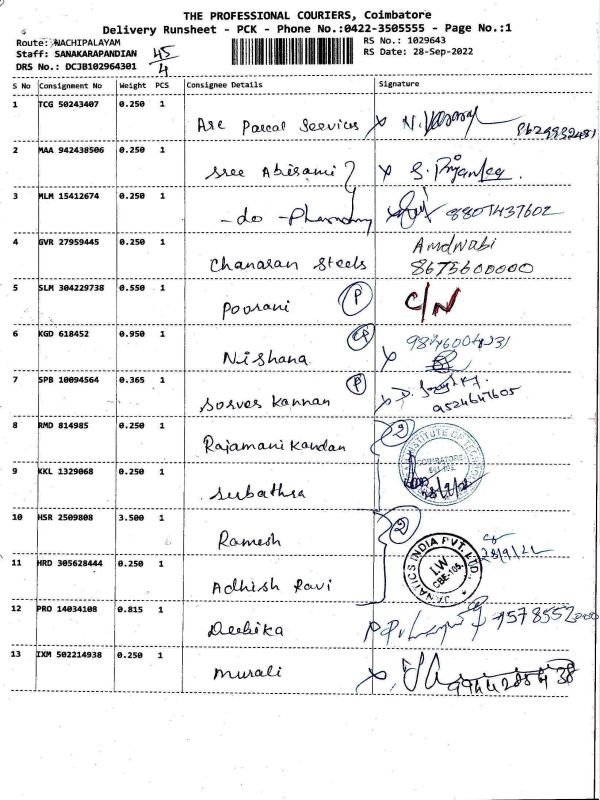 THE PROFESSIONAL COURIERS, Coimbatore
Delivery Runsheet - PCK - Phone No.:0422-3505555 - Page No.:1
Route: NACHIPALAYAM
Staff: SANAKARAPANDIAN
DRS No.: DCJB102964301
45/4
RS No.: 1029643
RS Date: 28-Sep-2022
S No Consignment No Weight PCS Consignee Details Signature
1 TCG 50243407 0.250 1
Are Parcel Services x N. 8629932481
2 MAA 942438506 0.250 1
Sree Abirami x S. Priyanka.
3 MLM 15412674 0.250 1
-do- Pharmacy 8807437602
4 GVR 27959445 0.250 1
Chanaran Steels
8675600000
5 SLM 304229738 0.550 1
Poorani P C/N
6 KGD 618452 0.950 1
Nishana x
7 SPB 10094564 0.365 1
Sorves Kannan P x
9524647605
8 RMD 814985 0.250 1
Rajamani Kandan 2
INSTITUTE OF TECHNOLOGY
COIMBATORE
9 KKL 1329068 0.250 1
Subathra
10 HSR 2509808 3.500 1
Ramesh 2
28/9/22
11 HRD 305628444 0.250 1
Adhish Ravi
JANATICS INDIA PVT. LTD.
LW
CBE-105.
12 PRO 14034108 0.815 1
Deebika
13 IXM 502214938 0.250 1
Murali x